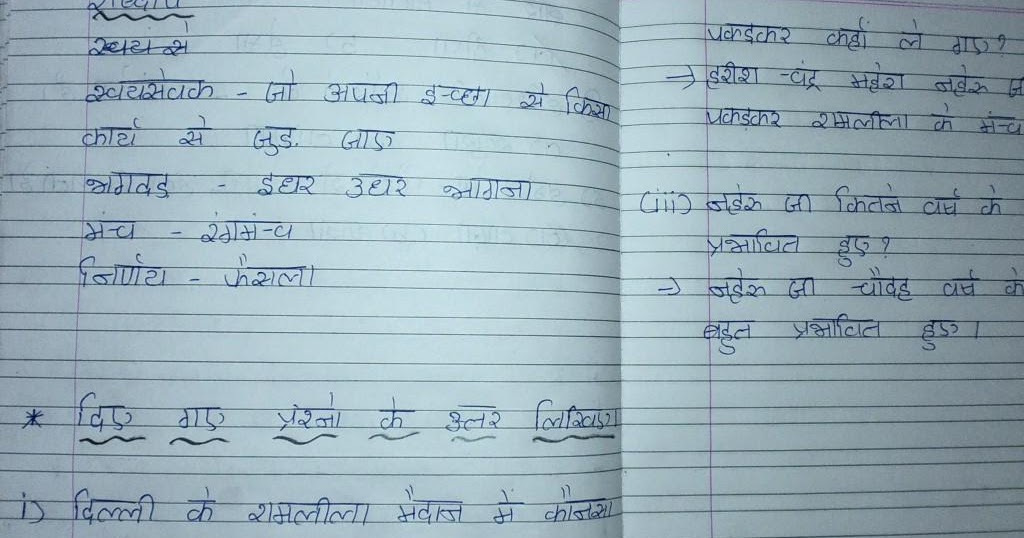 शब्दार्थ
स्वयं से
स्वयंसेवक - जो अपनी इच्छा से किसी
कार्य से जुड़ जाए
भागदड - इधर उधर भागना
मंच - रंगमंच
निर्णय - फैसला
* दिए गए प्रंश्नो के उत्तर लिखिए
i) दिल्ली के रामलीला मैदान में कौनसा
पकड़कर कहाँ ले गए?
→ हरीश-चंद्र महेश नहेरू
पकड़कर रामलीला के मंच
(iii) नहेरू जी कितने वर्ष के
प्रभावित हुए?
→ नहेरू जी चौदह वर्ष के
बहुत प्रभावित हुए।